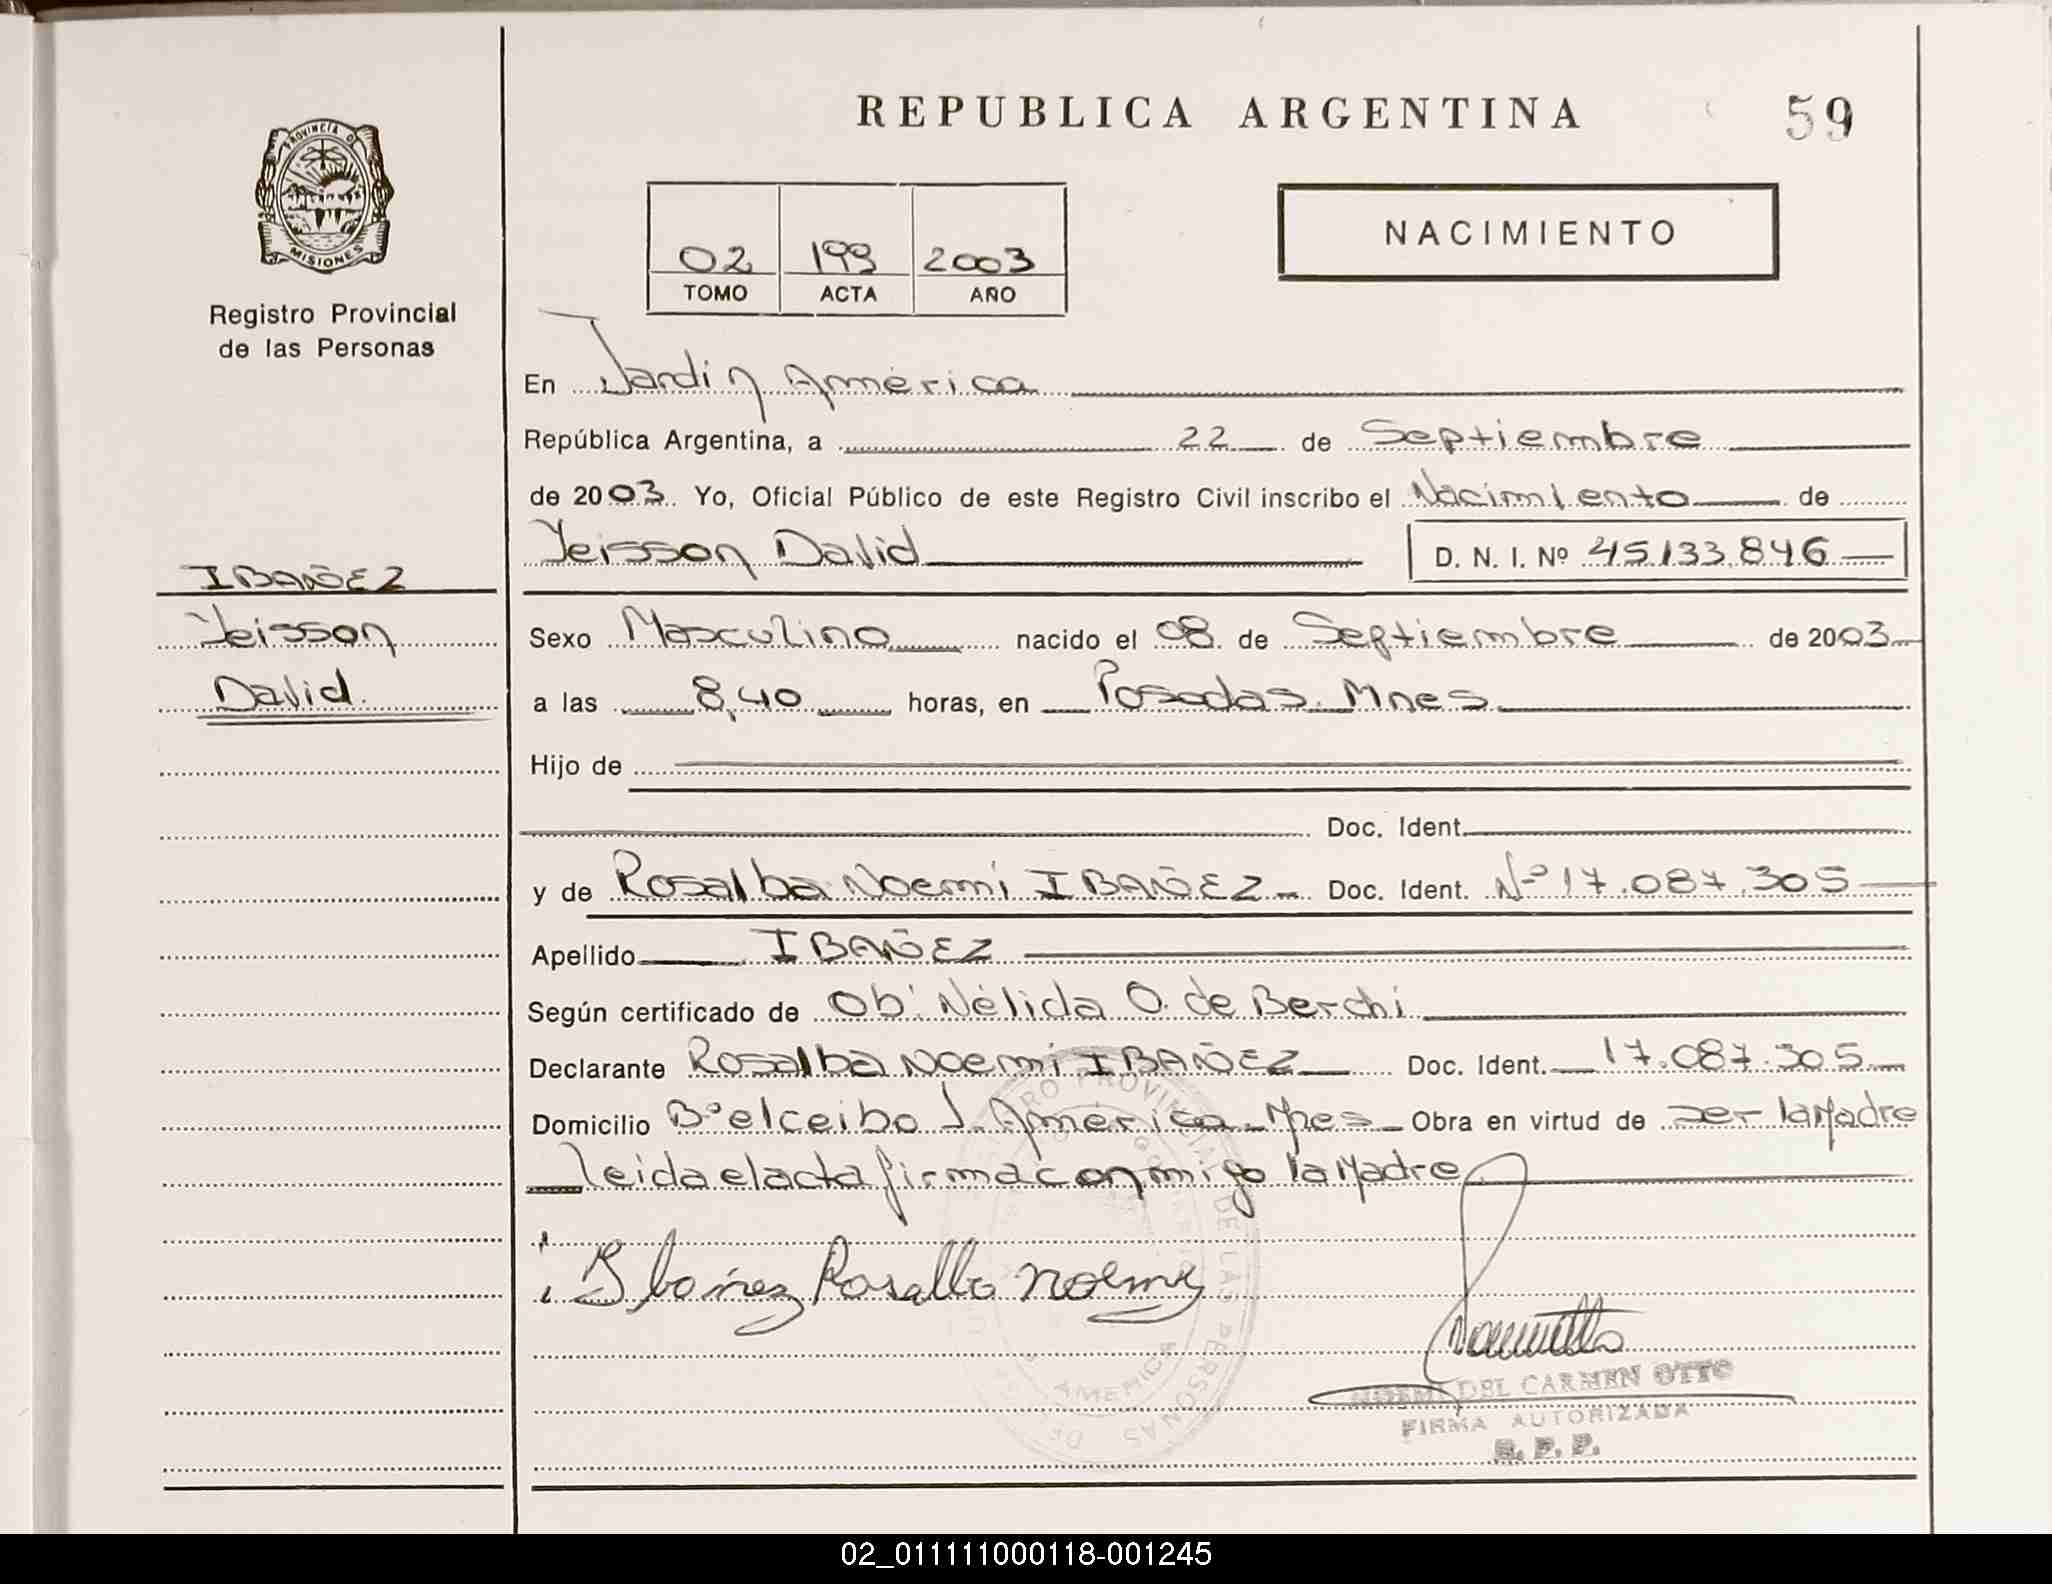 REPUBLICA ARGENTINA
59
PROVINCIA DE
MISIONES
Registro Provincial
de las Personas
02 199 2003
TOMO ACTA AÑO
NACIMIENTO
En Jardin América
República Argentina, a 22 de Septiembre
de 2003 Yo, Oficial Público de este Registro Civil inscribo el Nacimiento de
Yeisson David D. N. I. Nº 45.133.846
IBAÑEZ
Yeisson
David.
Sexo Masculino nacido el 08 de Septiembre de 2003
a las 8,40 horas, en Posadas Mnes
Hijo de
Doc. Ident.
y de Rosalba Noemi IBAÑEZ Doc. Ident. Nº 17.087.305
Apellido IBAÑEZ
Según certificado de Ob: Nélida O. de Berchi
Declarante Rosalba Noemi IBAÑEZ Doc. Ident. 17.087.305
Domicilio Bº el ceibo J. América Mnes Obra en virtud de ser la Madre
leida el acta firma conmigo la Madre
Ibañez Rosalba Noemy
REGISTRO PROVINCIAL DE LAS PERSONAS
AMERICA
NOEMI DEL CARMEN OTTO
FIRMA AUTORIZADA
R. P. P.
02_011111000118-001245